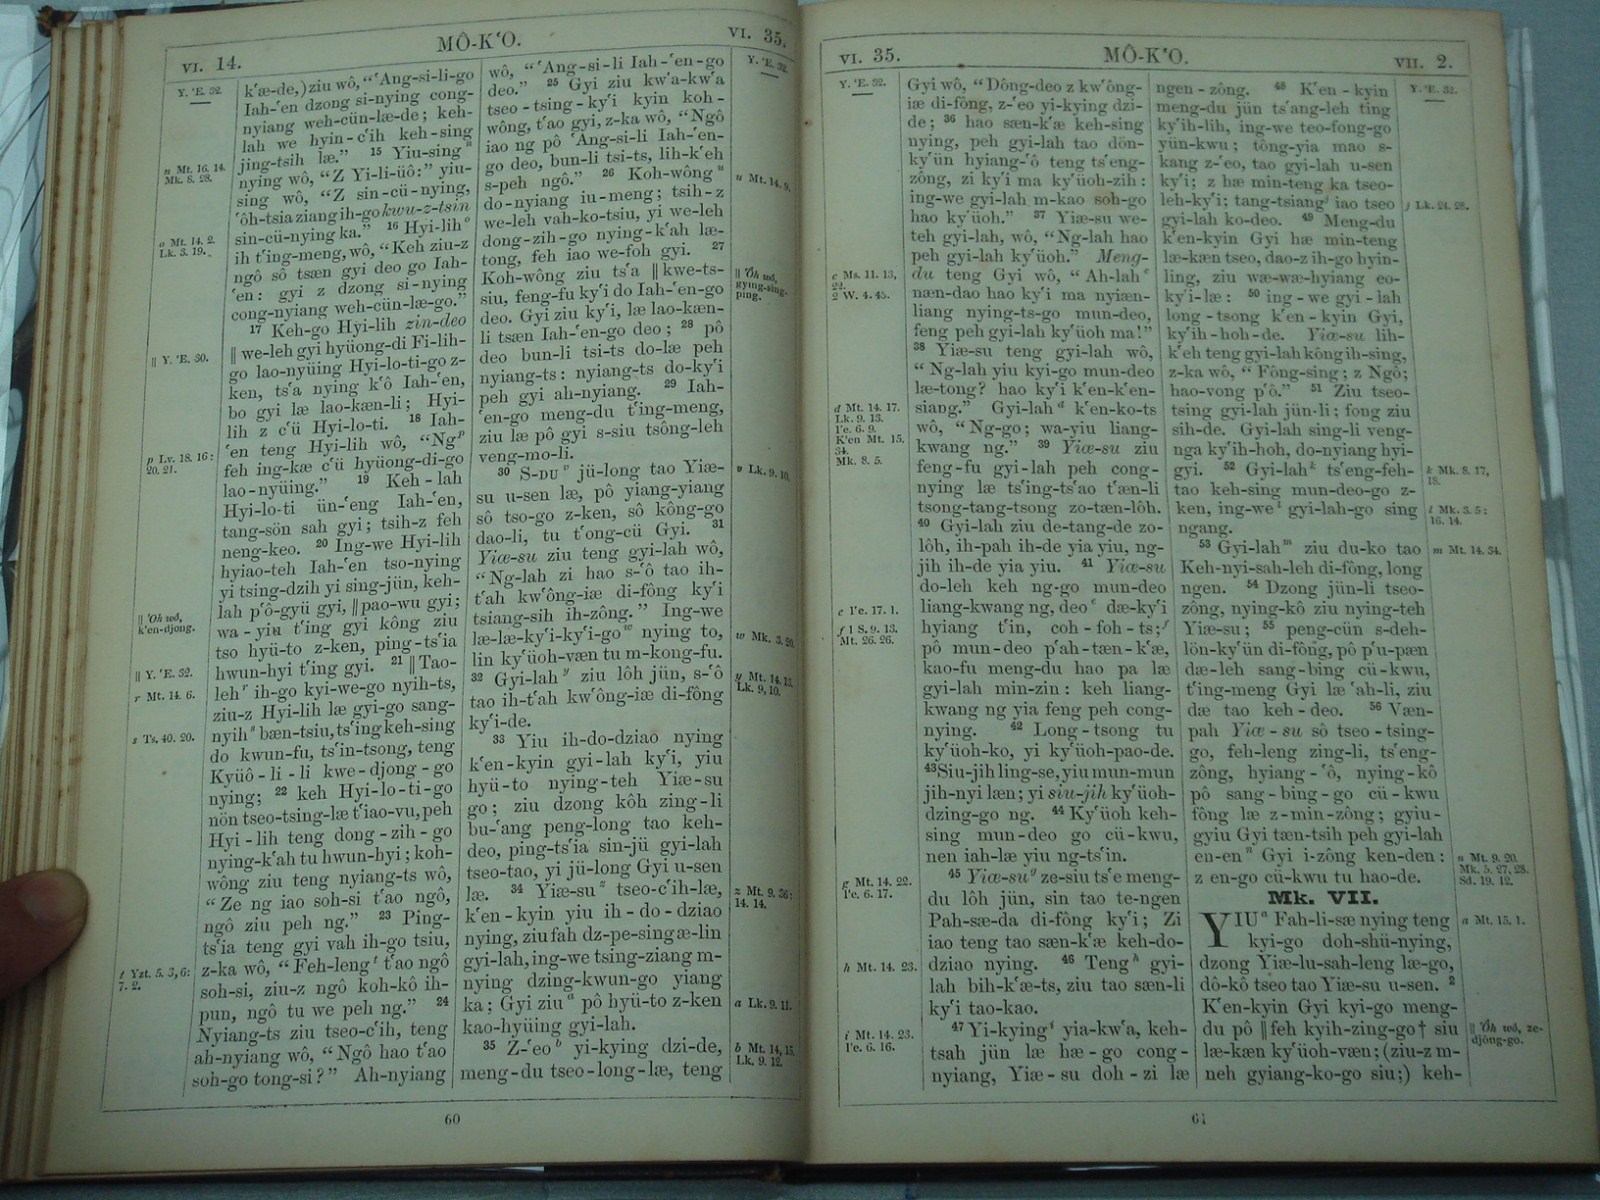 VI. 14.
MÔ-K‘O.
VI. 35.
k‘æ-de,) ziu wô, “‘Ang-si-li-go
Iah-‘en dzong si-nying cong-
nyiang weh-cün-læ-de; keh-
lah we hyin-c‘ih keh-sing
jing-tsih læ.” 15 Yiu-sing n
nying wô, “Z Yi-li-üô:” yiu-
sing wô, “Z sin-cü-nying,
‘ôh-tsia ziang ih-go kwu-z-tsin
sin-cü-nying ka.” 16 Hyi-lih o
ih t‘ing-meng, wô, “Keh ziu-z
ngô sô tsæn gyi deo go Iah-
‘en: gyi z dzong si-nying
cong-nyiang weh-cün-læ-go.”
17 Keh-go Hyi-lih zin-deo
‖ we-leh gyi hyüong-di Fi-lih-
go lao-nyüing Hyi-lo-ti-go z-
ken, ts‘a nying k‘ô Iah-‘en,
bo gyi læ lao-kæn-li; Hyi-
lih z c‘ü Hyi-lo-ti. 18 Iah-
‘en teng Hyi-lih wô, “Ng p
feh ing-kæ c‘ü hyüong-di-go
lao-nyüing.” 19 Keh-lah
Hyi-lo-ti ün-‘eng Iah-‘en,
tang-sön sah gyi; tsih-z feh
neng-keo. 20 Ing-we Hyi-lih
hyiao-teh Iah-‘en tso-nying
yi tsing-dzih yi sing-jün, keh-
lah p‘ô-gyü gyi, ‖ pao-wu gyi;
wa-yiu t‘ing gyi kông ziu
tso hyü-to z-ken, ping-ts‘ia
hwun-hyi t‘ing gyi. 21 ‖ Tao-
leh r ih-go kyi-we-go nyih-ts,
ziu-z Hyi-lih læ gyi-go sang-
nyih s bæn-tsiu, ts‘ing keh-sing
do kwun-fu, ts‘in-tsong, teng
Kyüô-li-li kwe-djong-go
nying; 22 keh Hyi-lo-ti-go
nön tseo-tsing-læ t‘iao-vu, peh
Hyi-lih teng dong-zih-go
nying-k‘ah tu hwun-hyi; koh-
wông ziu teng nyiang-ts wô,
“Ze ng iao soh-si t‘ao ngô,
ngô ziu peh ng.” 23 Ping-
ts‘ia teng gyi vah ih-go tsiu,
z-ka wô, “Feh-leng t t‘ao ngô
soh-si, ziu-z ngô koh-kô ih-
pun, ngô tu we peh ng.” 24
Nyiang-ts ziu tseo-c‘ih, teng
ah-nyiang wô, “Ngô hao t‘ao
soh-go tong-si?” Ah-nyiang
Y. ‘E. 32.
n Mt. 16. 14.
Mk. 8. 28.
o Mt. 14. 2.
Lk. 3. 19.
‖ Y. ‘E. 30.
p Lv. 18. 16:
20. 21.
‖ ‘Oh wô,
k‘en-djong.
‖ Y. ‘E. 32.
r Mt. 14. 6.
s Ts. 40. 20.
t Yzt. 5. 3, 6:
7. 2.
wô, “‘Ang-si-li Iah-‘en-go
deo.” 25 Gyi ziu kw‘a-kw‘a
tseo-tsing-ky‘i kyin koh-
wông, t‘ao gyi, z-ka wô, “Ngô
iao ng pô ‘Ang-si-li Iah-‘en-
go deo, bun-li tsi-ts, lih-k‘eh
s-peh ngô.” 26 Koh-wông u
do-nyiang iu-meng; tsih-z
we-leh vah-ko-tsiu, yi we-leh
dong-zih-go nying-k‘ah læ-
tong, feh iao we-foh gyi. 27
Koh-wông ziu ts‘a ‖ kwe-ts-
siu, feng-fu ky‘i do Iah-‘en-go
deo. Gyi ziu ky‘i, læ lao-kæn-
li tsæn Iah-‘en-go deo; 28 pô
deo bun-li tsi-ts do-læ peh
nyiang-ts: nyiang-ts do-ky‘i
peh gyi ah-nyiang. 29 Iah-
‘en-go meng-du t‘ing-meng,
ziu læ pô gyi s-siu tsông-leh
veng-mo-li.
30 S-DU v jü-long tao Yiæ-
su u-sen læ, pô yiang-yiang
sô tso-go z-ken, sô kông-go
dao-li, tu t‘ong-cü Gyi. 31
Yiæ-su ziu teng gyi-lah wô,
“Ng-lah zi hao s-‘ô tao ih-
t‘ah kw‘ông-iæ di-fông ky‘i
tsiang-sih ih-zông.” Ing-we
læ-læ-ky‘i-ky‘i-go w nying to,
lin ky‘üoh-væn tu m-kong-fu.
32 Gyi-lah y ziu lôh jün, s-‘ô
tao ih-t‘ah kw‘ông-iæ di-fông
ky‘i-de.
33 Yiu ih-do-dziao nying
k‘en-kyin gyi-lah ky‘i, yiu
hyü-to nying-teh Yiæ-su
go; ziu dzong kôh zing-li
bu-‘ang peng-long tao keh-
deo, ping-ts‘ia sin-jü gyi-lah
tseo-tao, yi jü-long Gyi u-sen
læ. 34 Yiæ-su z tseo-c‘ih-læ,
k‘en-kyin yiu ih-do-dziao
nying, ziu fah dz-pe-sing æ-lin
gyi-lah, ing-we tsing-ziang m-
nying dzing-kwun-go yiang
ka; Gyi ziu a pô hyü-to z-ken
kao-hyüing gyi-lah.
35 Z-‘eo b yi-kying dzi-de,
meng-du tseo-long-læ, teng
Y. ‘E. 32.
u Mt. 14. 9.
‖ ‘Ôh wô,
gying-sing-
ping.
v Lk. 9. 10.
w Mk. 3. 20.
y Mt. 14. 13.
Lk. 9. 10.
z Mt. 9. 36:
14. 14.
a Lk. 9. 11.
b Mt. 14, 15.
Lk. 9. 12.
60
VI. 35.
MÔ-K‘O.
VII. 2.
Y. ‘E. 32.
c Ms. 11. 13,
22.
2 W. 4. 45.
d Mt. 14. 17.
Lk. 9. 13.
I‘e. 6. 9.
K‘en Mt. 15.
34.
Mk. 8. 5.
e I‘e. 17. 1.
f 1 S. 9. 13.
Mt. 26. 26.
g Mt. 14. 22.
I‘e. 6. 17.
h Mt. 14. 23.
i Mt. 14. 23.
I‘e. 6. 16.
Gyi wô, “Dông-deo z kw‘ông-
iæ di-fông, z-‘eo yi-kying dzi-
de; 36 hao sæn-k‘æ keh-sing
nying, peh gyi-lah tao dön-
ky‘ün hyiang-‘ô teng ts‘eng-
zông, zi ky‘i ma ky‘üoh-zih:
ing-we gyi-lah m-kao soh-go
hao ky‘üoh.” 37 Yiæ-su we-
teh gyi-lah, wô, “Ng-lah hao
peh gyi-lah ky‘üoh.” Meng-
du teng Gyi wô, “Ah-lah c
næn-dao hao ky‘i ma nyiæn-
liang nying-ts-go mun-deo,
feng peh gyi-lah ky‘üoh ma!”
38 Yiæ-su teng gyi-lah wô,
“Ng-lah yiu kyi-go mun-deo
læ-tong? hao ky‘i k‘en-k‘en-
siang.” Gyi-lah d k‘en-ko-ts
wô, “Ng-go; wa-yiu liang-
kwang ng.” 39 Yiæ-su ziu
feng-fu gyi-lah peh cong-
nying læ ts‘ing-ts‘ao t‘æn-li
tsong-tang-tsong zo-tæn-lôh.
40 Gyi-lah ziu de-tang-de zo-
lôh, ih-pah ih-de yia yiu, ng-
jih ih-de yia yiu. 41 Yiæ-su
do-leh keh ng-go mun-deo
liang-kwang ng, deo e dæ-ky‘i
hyiang t‘in, coh-foh-ts; f
pô mun-deo p‘ah-tæn-k‘æ,
kao-fu meng-du hao pa læ
gyi-lah min-zin: keh liang-
kwang ng yia feng peh cong-
nying. 42 Long-tsong tu
ky‘üoh-ko, yi ky‘üoh-pao-de.
43 Siu-jih ling-se, yiu mun-mun
jih-nyi læn; yi siu-jih ky‘üoh-
dzing-go ng. 44 Ky‘üoh keh-
sing mun-deo go cü-kwu,
nen iah-læ yiu ng-ts‘in.
45 Yiæ-su g ze-siu ts‘e meng-
du lôh jün, sin tao te-ngen
Pah-sæ-da di-fông ky‘i; Zi
iao teng tao sæn-k‘æ keh-do-
dziao nying. 46 Teng h gyi-
lah bih-k‘æ-ts, ziu tao sæn-li
ky‘i tao-kao.
47 Yi-kying i yia-kw‘a, keh-
tsah jün læ hæ-go cong-
nyiang, Yiæ-su doh-zi læ
ngen-zông. 48 K‘en-kyin
meng-du jün ts‘ang-leh ting
ky‘ih-lih, ing-we teo-fong-go
yün-kwu; tông-yia mao s-
kang z-‘eo, tao gyi-lah u-sen
ky‘i; z hæ min-teng ka tseo-
leh-ky‘i; tang-tsiang j iao tseo
gyi-lah ko-deo. 49 Meng-du
k‘en-kyin Gyi hæ min-teng
læ-kæn tseo, dao-z ih-go hyin-
ling, ziu wæ-wæ-hyiang eo-
ky‘i-læ: 50 ing-we gyi-lah
long-tsong k‘en-kyin Gyi,
ky‘ih-hoh-de. Yiæ-su lih-
k‘eh teng gyi-lah kông ih-sing,
z-ka wô, “Fông-sing; z Ngô;
hao-vong p‘ô.” 51 Ziu tseo-
tsing gyi-lah jün-li; fong ziu
sih-de. Gyi-lah sing-li veng-
nga ky‘ih-hoh, do-nyiang hyi-
gyi. 52 Gyi-lah k ts‘eng-feh-
tao keh-sing mun-deo-go z-
ken, ing-we l gyi-lah-go sing
ngang.
53 Gyi-lah m ziu du-ko tao
Keh-nyi-sah-leh di-fông, long
ngen. 54 Dzong jün-li tseo-
zông, nying-kô ziu nying-teh
Yiæ-su; 55 peng-cün s-deh-
lön-ky‘ün di-fông, pô p‘u-pæn
dæ-leh sang-bing cü-kwu,
t‘ing-meng Gyi læ ‘ah-li, ziu
dæ tao keh-deo. 56 Væn-
pah Yiæ-su sô tseo-tsing-
go, feh-leng zing-li, ts‘eng-
zông, hyiang-‘ô, nying-kô
pô sang-bing-go cü-kwu
fông læ z-min-zông; gyiu-
gyiu Gyi tæn-tsih peh gyi-lah
en-en n Gyi i-zông ken-den:
z en-go cü-kwu tu hao-de.
Mk. VII.
YIU a Fah-li-sæ nying teng
kyi-go doh-shü-nying,
dzong Yiæ-lu-sah-leng læ-go,
dô-kô tseo tao Yiæ-su u-sen. 2
K‘en-kyin Gyi kyi-go meng-
du pô ‖ feh kyih-zing-go† siu
læ-kæn ky‘üoh-væn; (ziu-z m-
neh gyiang-ko-go siu;) keh-
Y. ‘E. 32.
j Lk. 24. 28.
k Mk. 8. 17,
18.
l Mk. 3. 5:
16. 14.
m Mt. 14. 34.
n Mt. 9. 20.
Mk. 5. 27, 28.
Sd. 19. 12.
a Mt. 15. 1.
‖ ‘Ôh wô, ze-
djông-go.
61